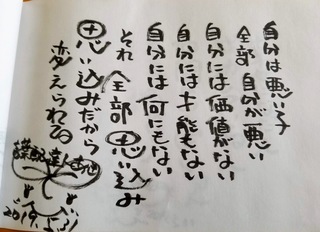 自分は悪い子
全部 自分が悪い
自分には価値がない
自分には才能もない
自分には何にもない
それ 全部 思い込み
思い込みだから
変えられる
2019.5.31